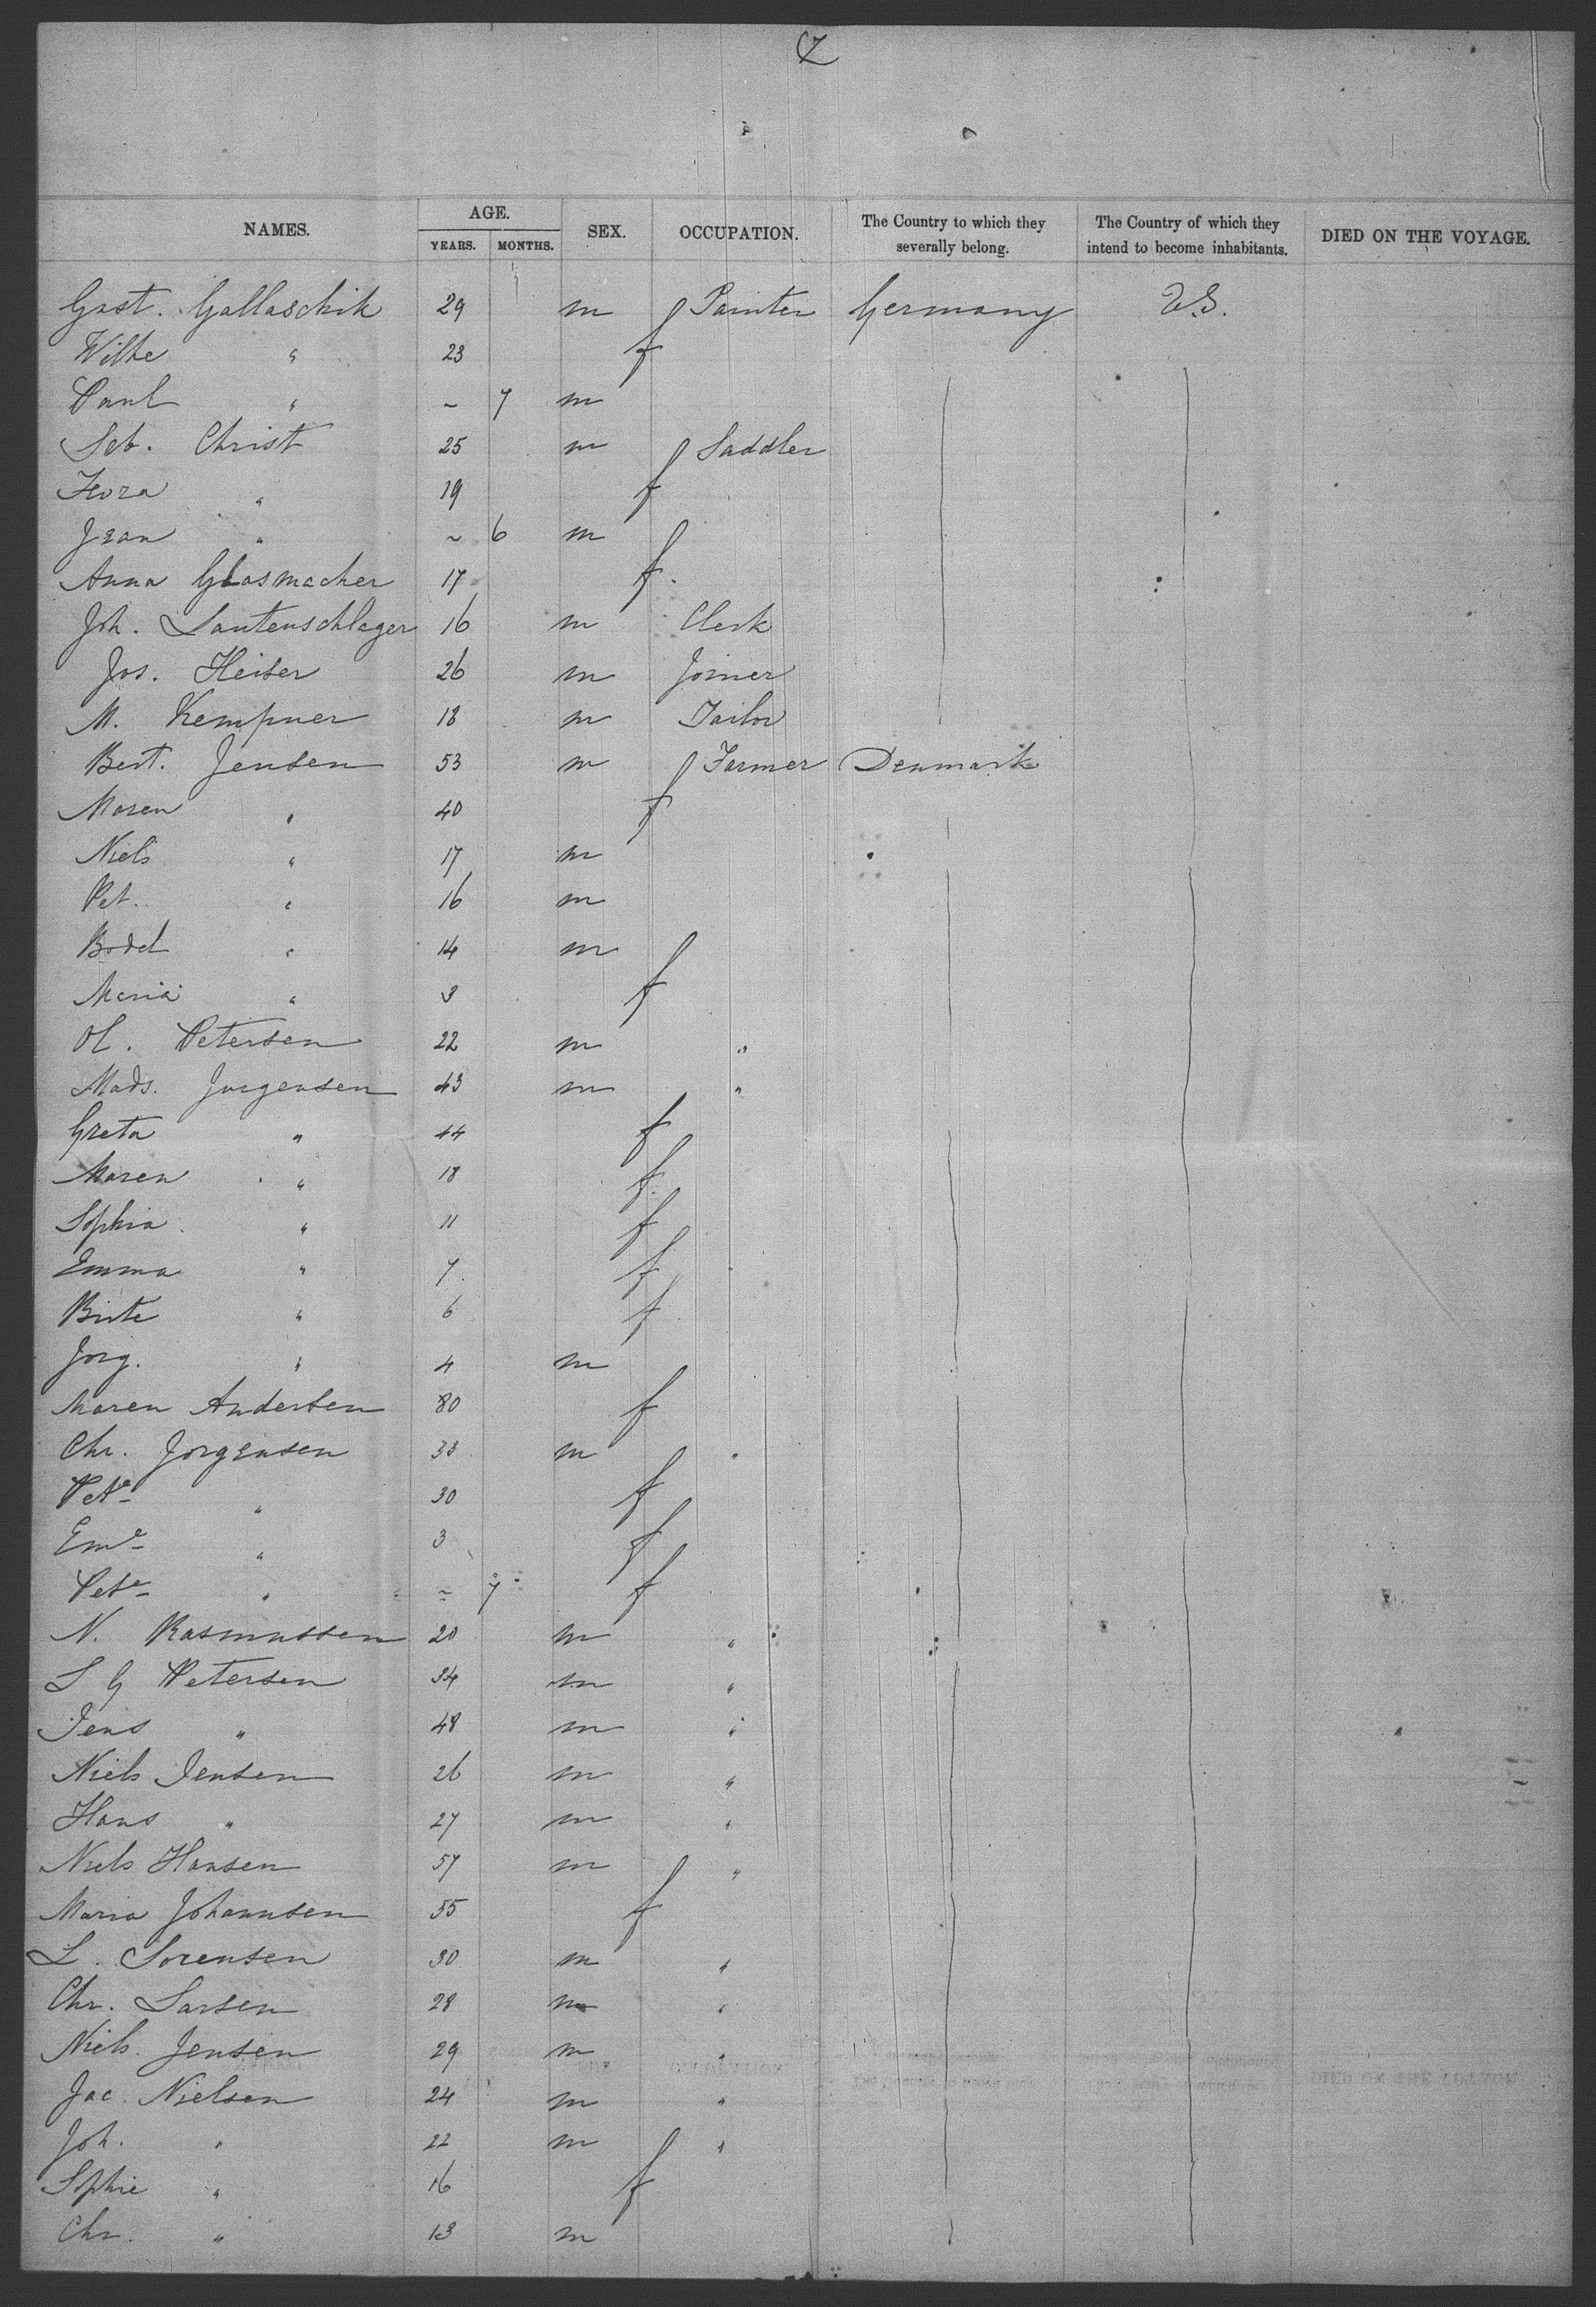 7
NAMES. AGE. YEARS. MONTHS. SEX. OCCUPATION. The Country to which they severally belong. The Country of which they intend to become inhabitants. DIED ON THE VOYAGE.
Gust. Gallaschik 29 m Painter Germany U.S.
Wilhe " 23 f
Paul " ~ 7 m
Seb. Christ 25 m Saddler
Flora " 19 f
Jean " ~ 6 m
Anna Glasmacher 17 f.
Joh. Lautenschlager 16 m Clerk
Jos. Heiser 26 m Joiner
M. Kempner 18 m Tailor
Bert. Jensen 53 m Farmer Denmark
Maren " 40 f
Niels " 17 m
Pet. " 16 m
Bodel " 14 m
Maria " 3 f
Ol. Petersen 22 m "
Mads. Jorgensen 43 m "
Greta " 44 f
Maren " 18 f.
Sophia " 11 f
Emma " 7 f
Birte " 6 f
Jorg. " 4 m
Maren Andersen 80 f
Chr. Jorgensen 33 m "
Pete " 30 f
Eme " 3 f
Pete " ~ 7 f
N. Rasmussen 20 m "
L G Petersen 34 m "
Jens " 48 m "
Niels Jensen 26 m "
Hans " 27 m "
Niels Hansen 57 m "
Maria Johannsen 55 f
L. Sorensen 30 m "
Chr. Larsen 28 m "
Niels Jensen 29 m "
Jac. Nielsen 24 m "
Joh. " 22 m "
Sophie " 16 f
Chr. " 13 m